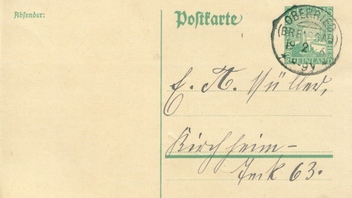 Absender:
Postkarte
OBERRIED
(BREISGAU)
RHEINLAND
E. A. Müller,
Kirchheim-
Teck 63.